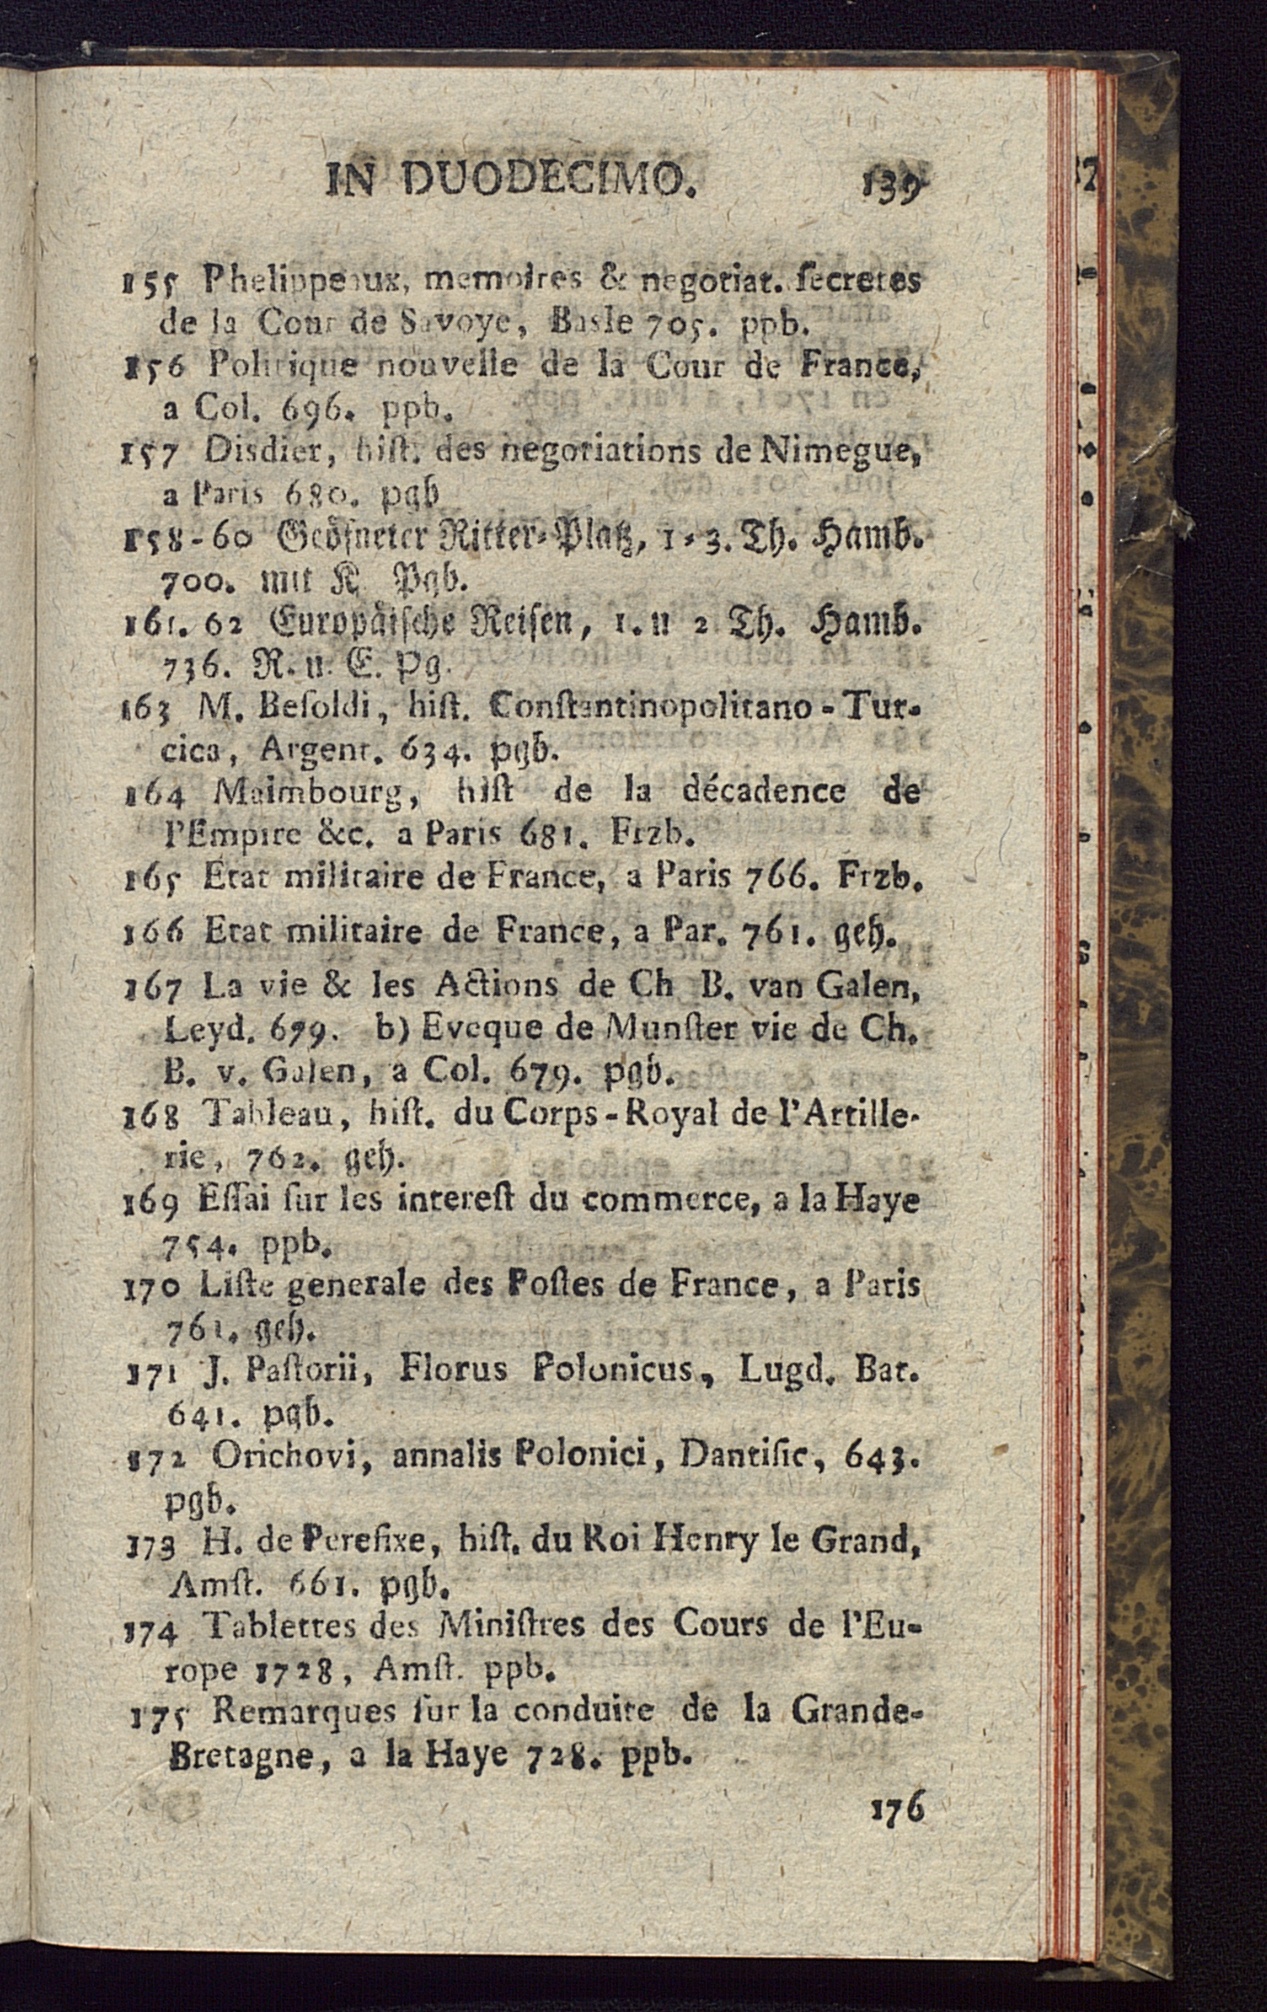 IN DUODECIMO. 139
155 Phelippeaux, memoires & negotiat. ſecretes
de la Cour de Savoye, Basle 705. ppb.
156 Politique nouvelle de la Cour de France,
a Col. 696. ppb.
157 Disdier, hiſt. des negotiations de Nimegue,
a Paris 680. pgb
158-60 Geöfneter Ritter-Platz, 1-3. Th. Hamb.
700. mit K Pgb.
161. 62 Europäiſche Reiſen, 1. u 2 Th. Hamb.
736. R. u. E. Pg.
163 M. Beſoldi, hiſt. Conſtantinopolitano-Tur-
cica, Argent. 634. pgb.
164 Maimbourg, hiſt de la décadence de
l'Empire &c. a Paris 681. Frzb.
165 Etat militaire de France, a Paris 766. Frzb.
166 Etat militaire de France, a Par. 761. geh.
167 La vie & les Actions de Ch B. van Galen,
Leyd. 679. b) Eveque de Munſter vie de Ch.
B. v. Galen, a Col. 679. pgb.
168 Tableau, hiſt. du Corps-Royal de l'Artille-
rie, 762. geh.
169 Eſſai ſur les intereſt du commerce, a la Haye
754. ppb.
170 Liſte generale des Poſtes de France, a Paris
761. geh.
171 J. Paſtorii, Florus Polonicus, Lugd. Bat.
641. pgb.
172 Orichovi, annalis Polonici, Dantiſic, 643.
pgb.
173 H. de Perefixe, hiſt. du Roi Henry le Grand,
Amſt. 661. pgb.
174 Tablettes des Miniſtres des Cours de l'Eu-
rope 1728, Amſt. ppb.
175 Remarques ſur la conduite de la Grande-
Bretagne, a la Haye 728. ppb.
176